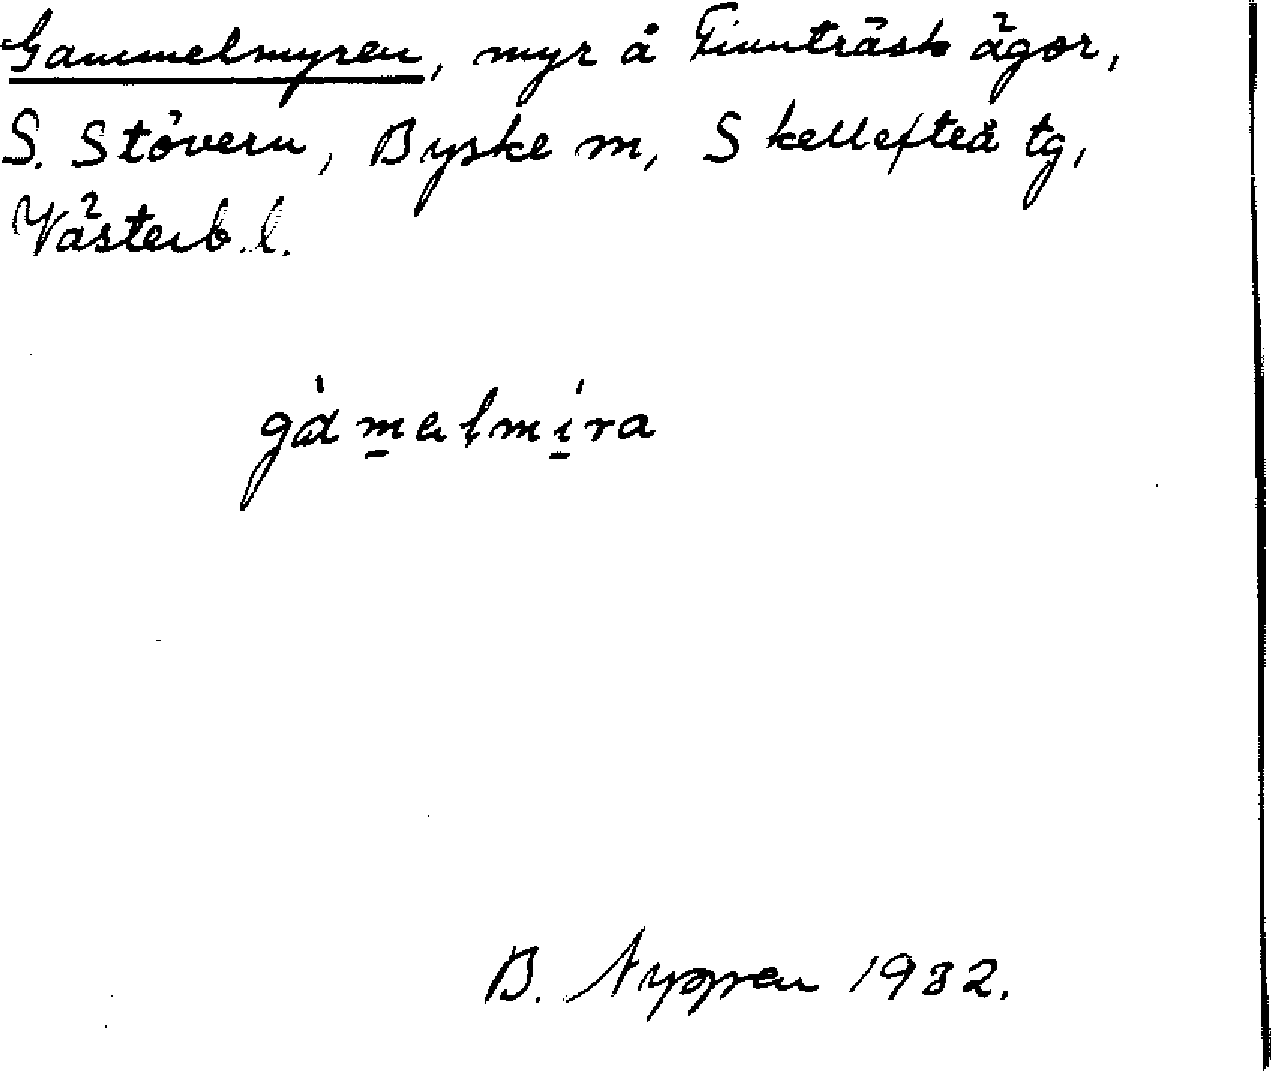 Gammelmyren, myr å Finnträsk ägor,
S. Stövern, Byske m, Skellefteå tg,
Västerb. l.
gàmalmíra
B. Nygren 1932.